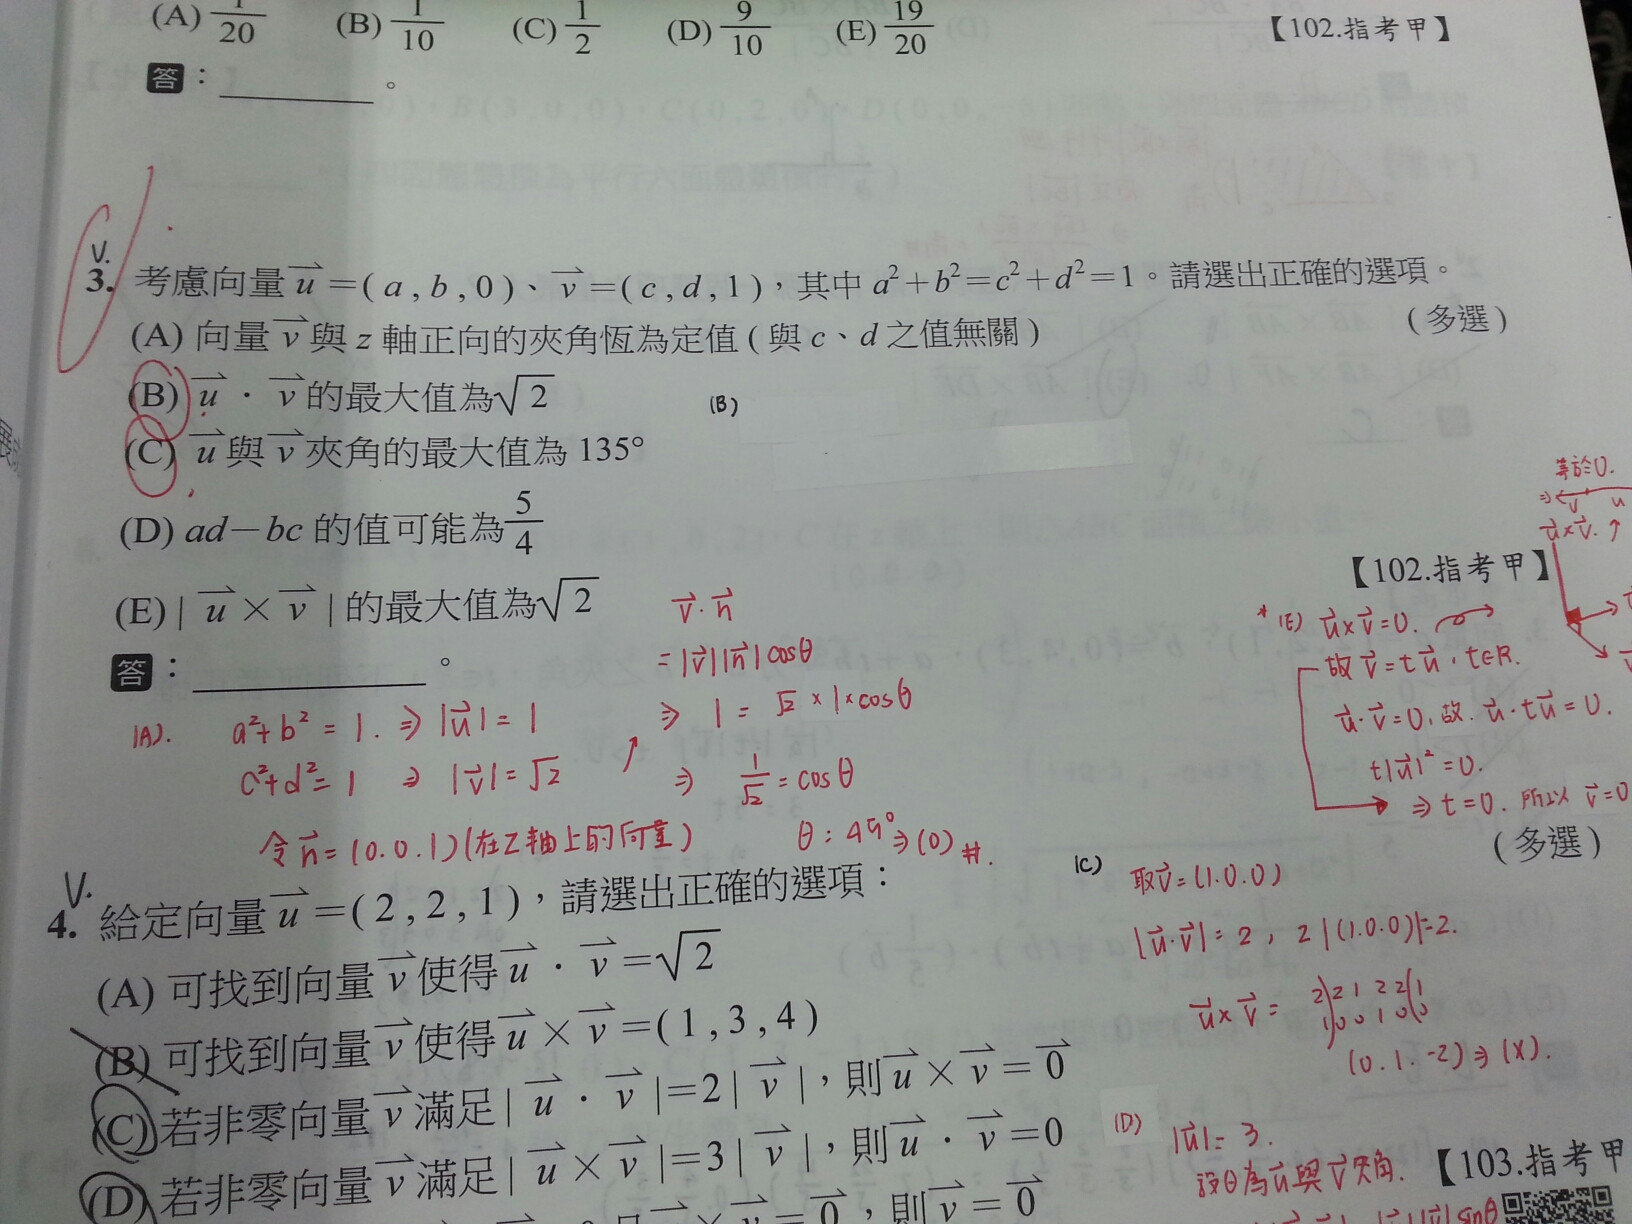 (A) 1/20 (B) 1/10 (C) 1/2 (D) 9/10 (E) 19/20 【102.指考甲】
答：________。
V.
3. 考慮向量 u⃗ =( a , b , 0 )、v⃗ =( c , d , 1 )，其中 a²+b²=c²+d²=1。請選出正確的選項。
(多選)
(A) 向量 v⃗ 與 z 軸正向的夾角恆為定值 ( 與 c、d 之值無關 )
(B) u⃗ · v⃗ 的最大值為√2
(B)
(C) u⃗ 與 v⃗ 夾角的最大值為 135°
(D) ad－bc 的值可能為 5/4
【102.指考甲】
(E) | u⃗ × v⃗ | 的最大值為√2
答：________。
(A). a²+b²=1. ⇒ |u⃗|=1
c²+d²=1 ⇒ |v⃗|=√2
令 n⃗=(0.0.1)(在Z軸上的向量)
v⃗·n⃗
=|v⃗||n⃗|cosθ
⇒ 1=√2×1×cosθ
⇒ 1/√2=cosθ
θ:45°⇒(0)#.
等於0.
u⃗×v⃗.↑
*(E) u⃗×v⃗=0.
故 v⃗=tu⃗, t∈R.
u⃗·v⃗=0, 故. u⃗·tu⃗=0.
t|u⃗|²=0.
⇒t=0. 所以 v⃗=0
(多選)
V.
4. 給定向量 u⃗ =( 2 , 2 , 1 )，請選出正確的選項：
(A) 可找到向量 v⃗ 使得 u⃗ · v⃗ =√2
(B) 可找到向量 v⃗ 使得 u⃗ × v⃗ =( 1 , 3 , 4 )
(C) 若非零向量 v⃗ 滿足 | u⃗ · v⃗ |=2 | v⃗ |，則 u⃗ × v⃗ = 0⃗
(D) 若非零向量 v⃗ 滿足 | u⃗ × v⃗ |=3 | v⃗ |，則 u⃗ · v⃗ =0
，則 v⃗ = 0⃗
(C) 取v⃗=(1.0.0)
|u⃗·v⃗|=2, 2|(1.0.0)|=2.
u⃗×v⃗= 2|2 1 2 2|1
1|0 0 1 0|0
(0.1.-2)⇒(X).
(D) |u⃗|=3.
設θ為u⃗與v⃗夾角.
【103.指考甲